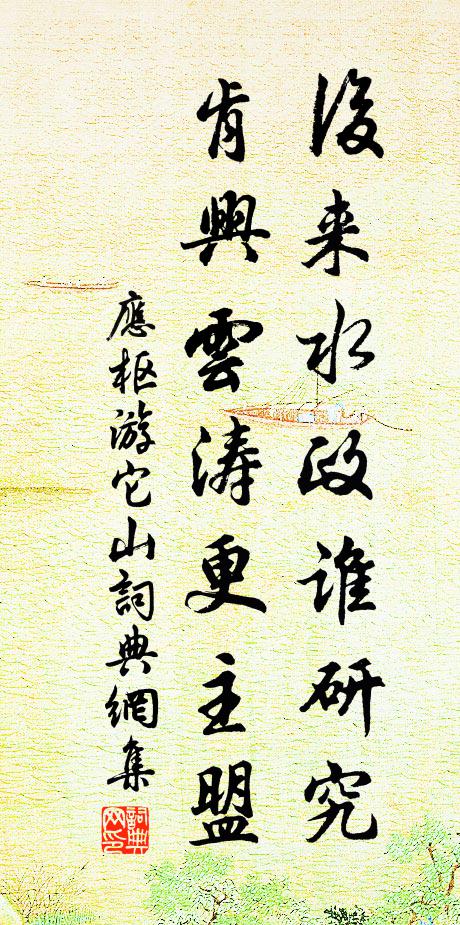 後来水政誰研究
肯興雲濤更主盟
應枢游它山詞典網集
詞典网印